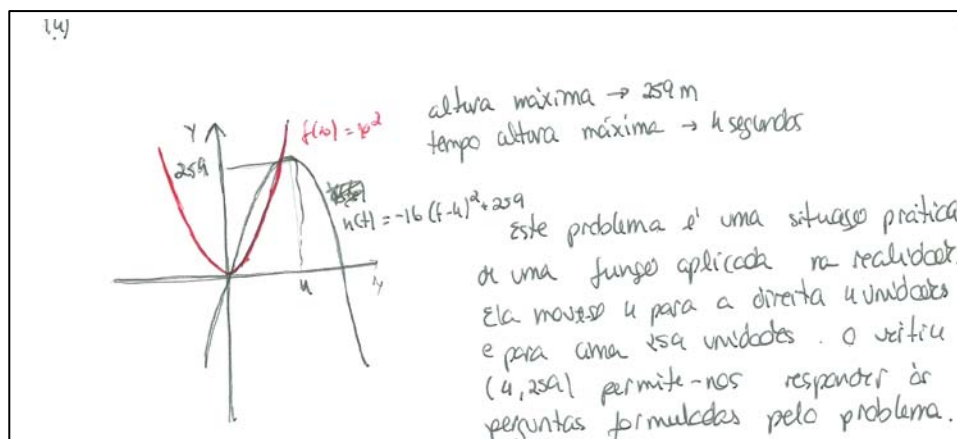 1.4)
altura máxima → 259 m
tempo altura máxima → 4 segundos
Y
f(x) = x²
259
h(t) = -16 (t-4)² + 259
4
Este problema é uma situaço prática
de uma funço aplicada na realidade.
Ela move-se 4 para a direita 4 unidades
e para cima 259 unidades. O vértice
(4, 259) permite-nos responder às
perguntas formuladas pelo problema.